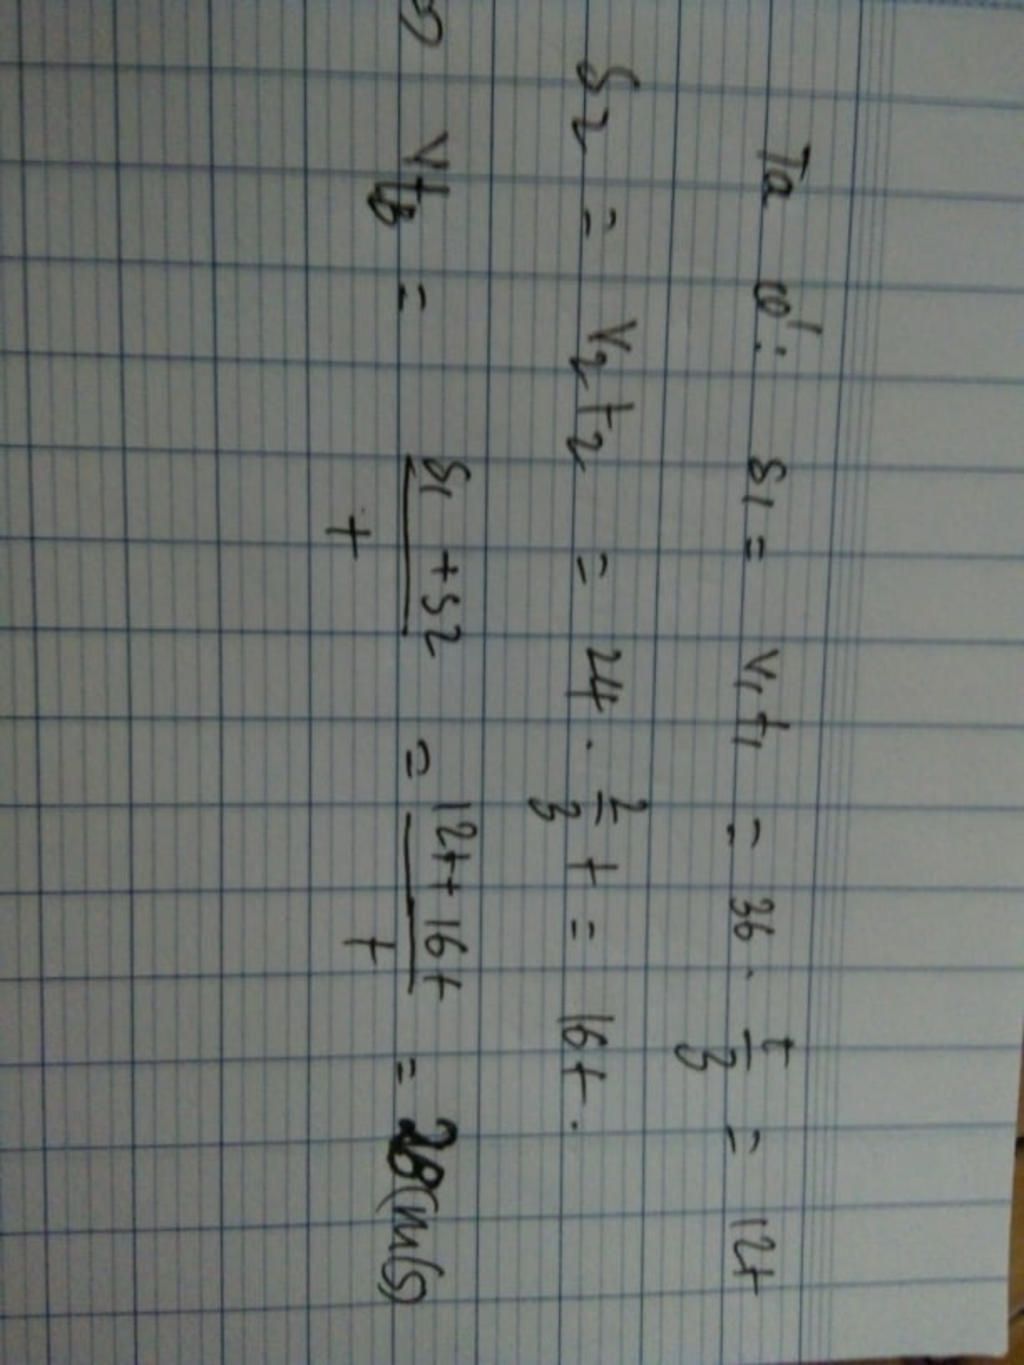 Ta có: S1 = V1t1 = 36 . t/3 = 12t
S2 = V2t2 = 24 . 2/3 t = 16t.
=> Vtb = (S1 + S2)/t = (12t + 16t)/t = 28(m/s)